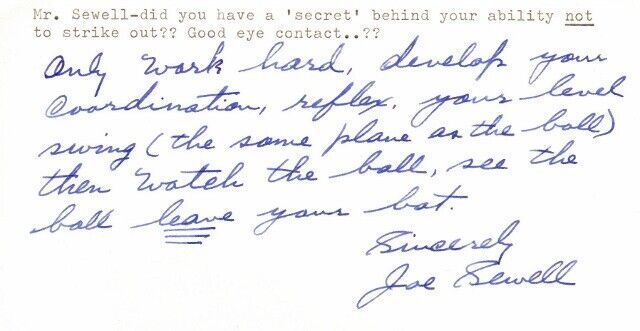 Mr. Sewell-did you have a 'secret' behind your ability not
to strike out?? Good eye contact..??
Only work hard, develop your
Coordination, reflex, your level
swing (the same plane as the ball)
then watch the ball, see the
ball leave your bat.
Sincerely
Joe Sewell